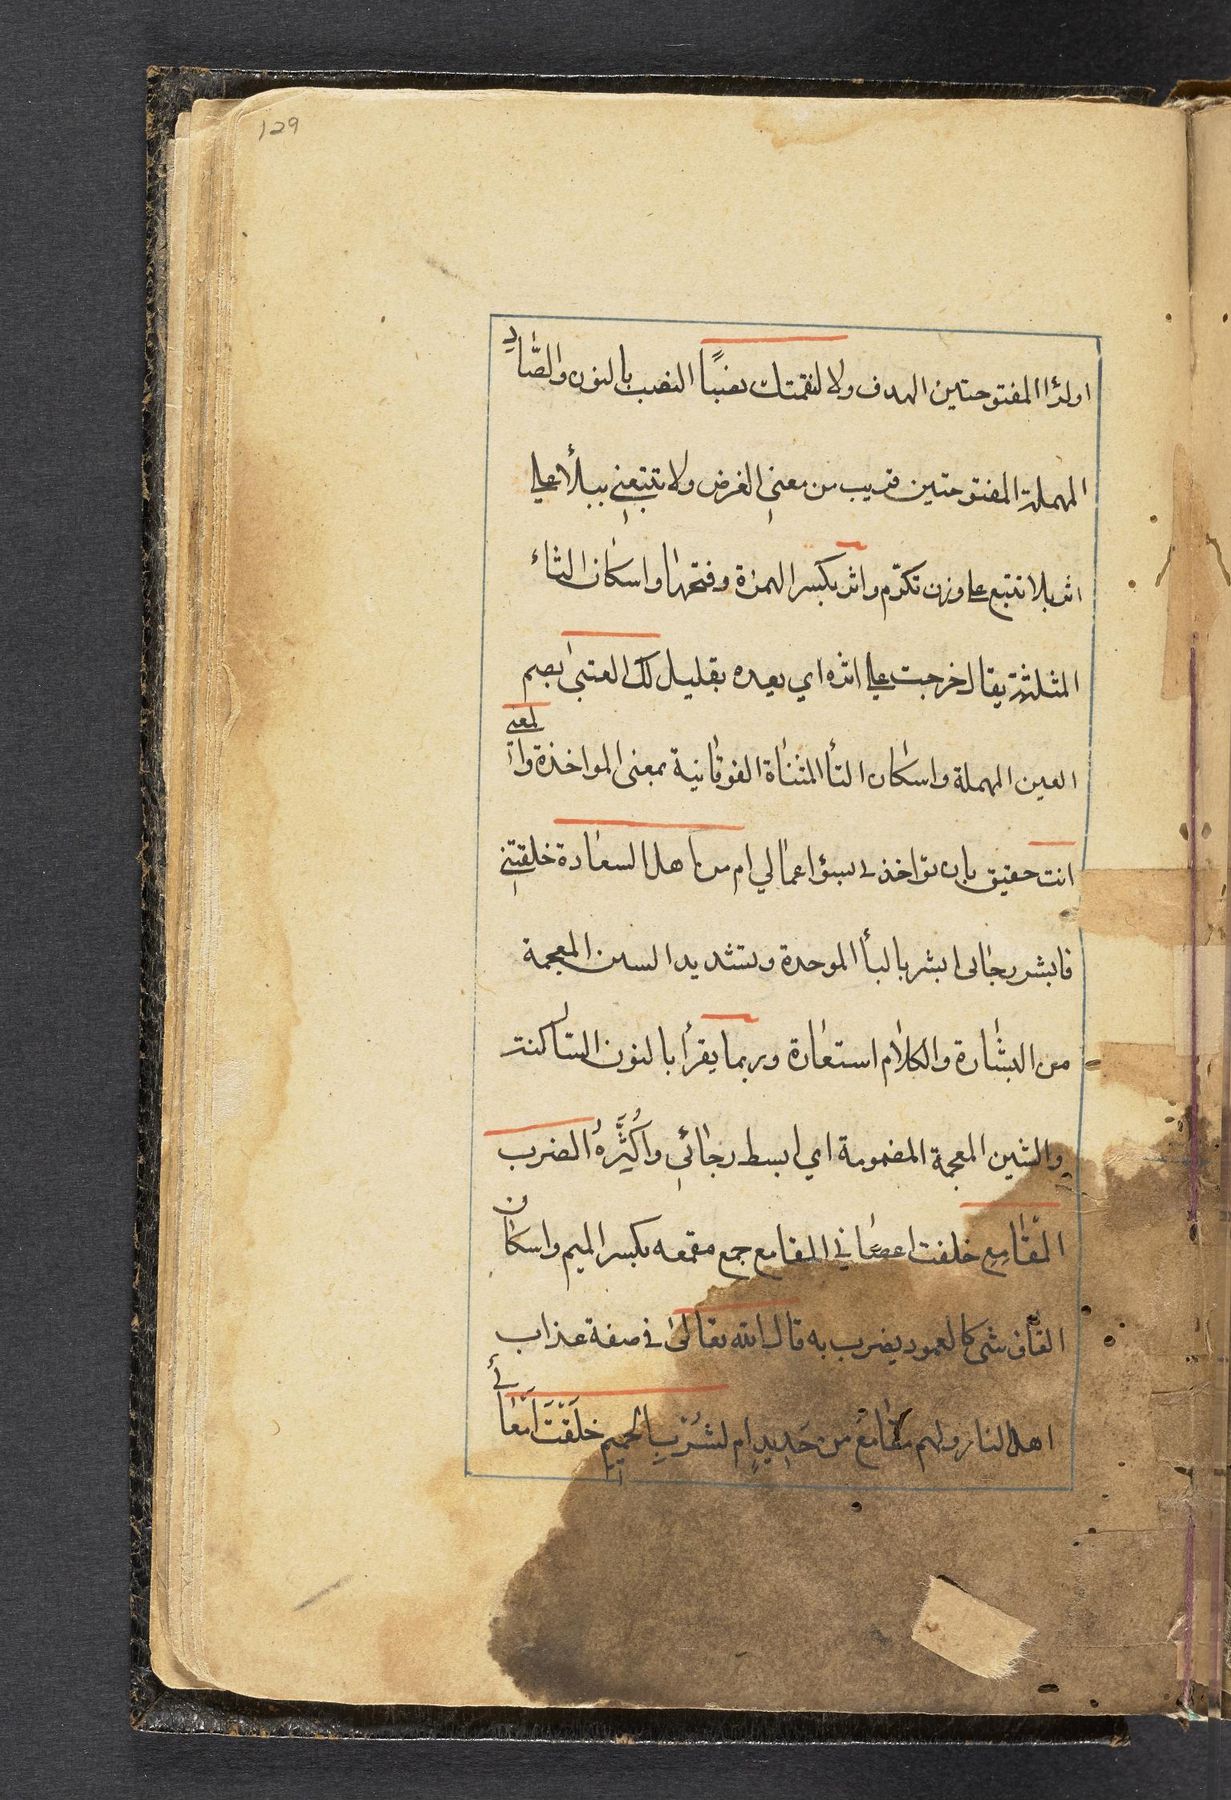 129
اولها المفتوحتين الهدف ولا لنقمتك نصبًا النصب بالنون والصَّادِ
المهملة المفتوحتين قريب من معنى الغرض ولا تتبعني ببلأ على
اثر بلا تتبع على وزن تكرّم واثر بكسر الهمزة وفتحها واسكان الثاء
المثلثة يقال خرجت على اثره اي بعده بقليل لك العتبى بضم
العين المهملة واسكان التأ المثناة الفوقانية بمعنى المواخذة والمعنى
انت حقيق بان تواخذني بسؤ اعمالي ام من اهل السعادة خلقتني
فابشر رجائى ابشر بالبأ الموحدة وتشديد السين المعجمة
من البشارة والكلام استعارة وربما يقرأ بالنون الساكنة
والشين المعجمة المضمومة اي ابسط رجائي واكَثِّرهُ الضرب
المقَامِعِ خلقت اعضائي المقامع جمع مقمعه بكسر الميم واسكان
القاف شى كالعمود يضرب به قال الله تعالى في صفة عذاب
اهل النار ولهم مقامع من حَديدٍ ام لشُرْبِ الحَميمِ خلَقْتَ اَمْعَائي